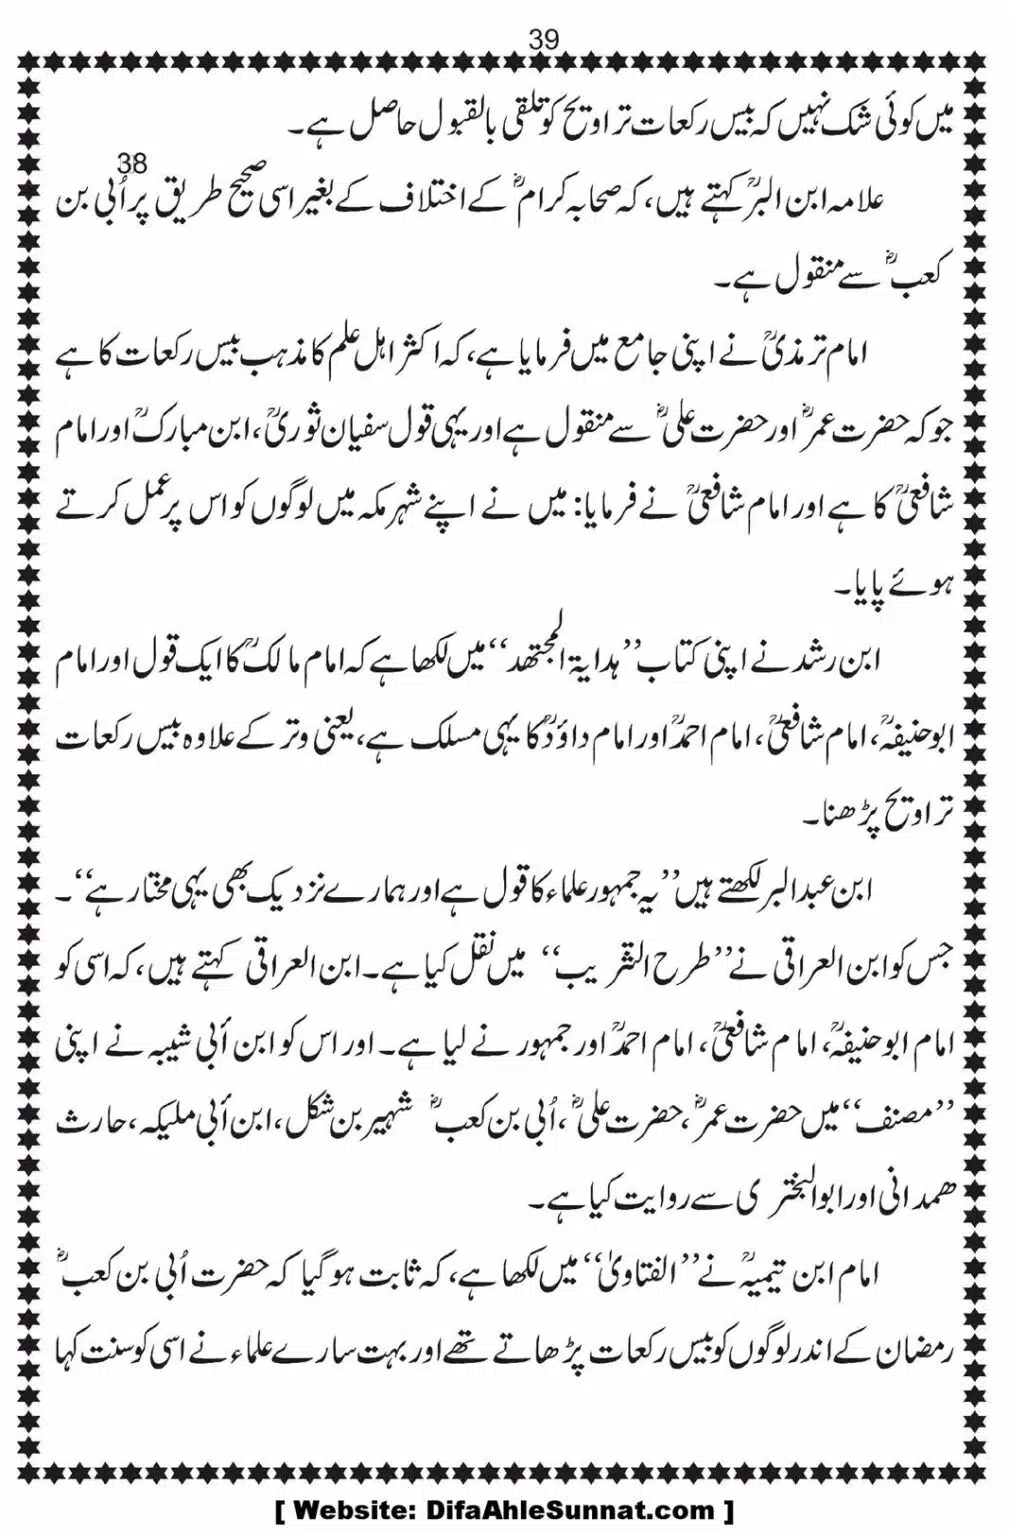 39
میں کوئی شک نہیں کہ بیس رکعات تراویح کو تلقی بالقبول حاصل ہے۔
38
علامہ ابن البرؒ کہتے ہیں، کہ صحابہ کرامؓ کے اختلاف کے بغیر اسی صحیح طریق پر اُبی بن
کعبؓ سے منقول ہے۔
امام ترمذیؒ نے اپنی جامع میں فرمایا ہے، کہ اکثر اہل علم کا مذہب بیس رکعات کا ہے
جو کہ حضرت عمرؓ اور حضرت علیؓ سے منقول ہے اور یہی قول سفیان ثوریؒ، ابن مبارکؒ اور امام
شافعیؒ کا ہے اور امام شافعیؒ نے فرمایا: میں نے اپنے شہر مکہ میں لوگوں کو اس پر عمل کرتے
ہوئے پایا۔
ابن رشد نے اپنی کتاب ’’ہدایۃ المجتھد‘‘ میں لکھا ہے کہ امام مالکؒ کا ایک قول اور امام
ابوحنیفہؒ، امام شافعیؒ، امام احمدؒ اور امام داؤدؒ کا یہی مسلک ہے، یعنی وتر کے علاوہ بیس رکعات
تراویح پڑھنا۔
ابن عبدالبر لکھتے ہیں ’’یہ جمہور علماء کا قول ہے اور ہمارے نزدیک بھی یہی مختار ہے‘‘۔
جس کو ابن العراقی نے ’’طرح التقریب‘‘ میں نقل کیا ہے۔ ابن العراقی کہتے ہیں، کہ اسی کو
امام ابوحنیفہؒ، امام شافعیؒ، امام احمدؒ اور جمہور نے لیا ہے۔ اور اس کو ابن أبی شیبہ نے اپنی
’’مصنف‘‘ میں حضرت عمرؓ، حضرت علیؓ، اُبی بن کعبؓ شہیر بن شکل، ابن أبی ملیکہ، حارث
ھمدانی اور ابوالبختری سے روایت کیا ہے۔
امام ابن تیمیہؒ نے ’’الفتاویٰ‘‘ میں لکھا ہے، کہ ثابت ہو گیا کہ حضرت اُبی بن کعبؓ
رمضان کے اندر لوگوں کو بیس رکعات پڑھاتے تھے اور بہت سارے علماء نے اسی کو سنت کہا
[ Website: DifaAhleSunnat.com ]